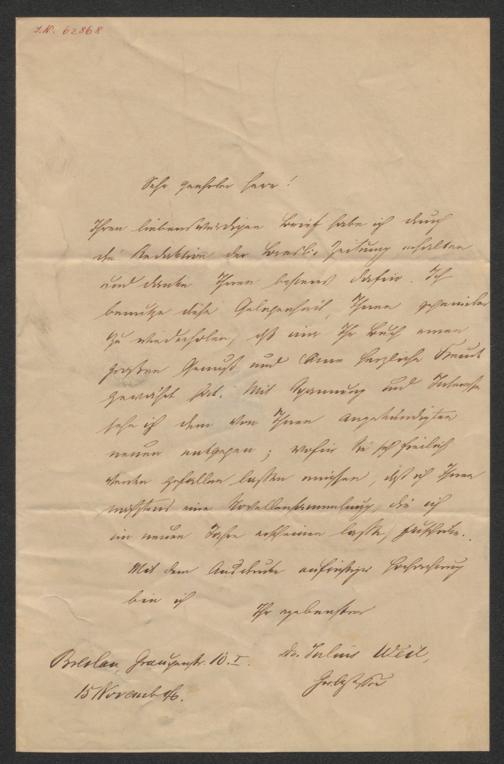 I.N. 62868
Sehr geehrter Herr!
Ihren liebenswürdigen Brief habe ich durch
die Redaktion der Bresl. Zeitung erhalten
und danke Ihnen bestens dafür. Ich
benutze diese Gelegenheit, Ihnen
zu wiederholen, daß mir Ihr Buch einen
großen Genuß und eine herzliche Freude
gewährt hat. Mit Spannung und Interesse
sehe ich dem von Ihnen angekündigten
neuen entgegen; wofür Sie sich freilich
werden gefallen lassen müssen, daß ich Ihnen
nächstens eine Novellensammlung, die ich
im neuen Jahre erscheinen lasse,
Mit dem Ausdrucke aufrichtiger Hochachtung
bin ich
Ihr ergebenster
Dr. Julius Weil,
Breslau, Graupenstr. 10. I.
15 Novemb 96.